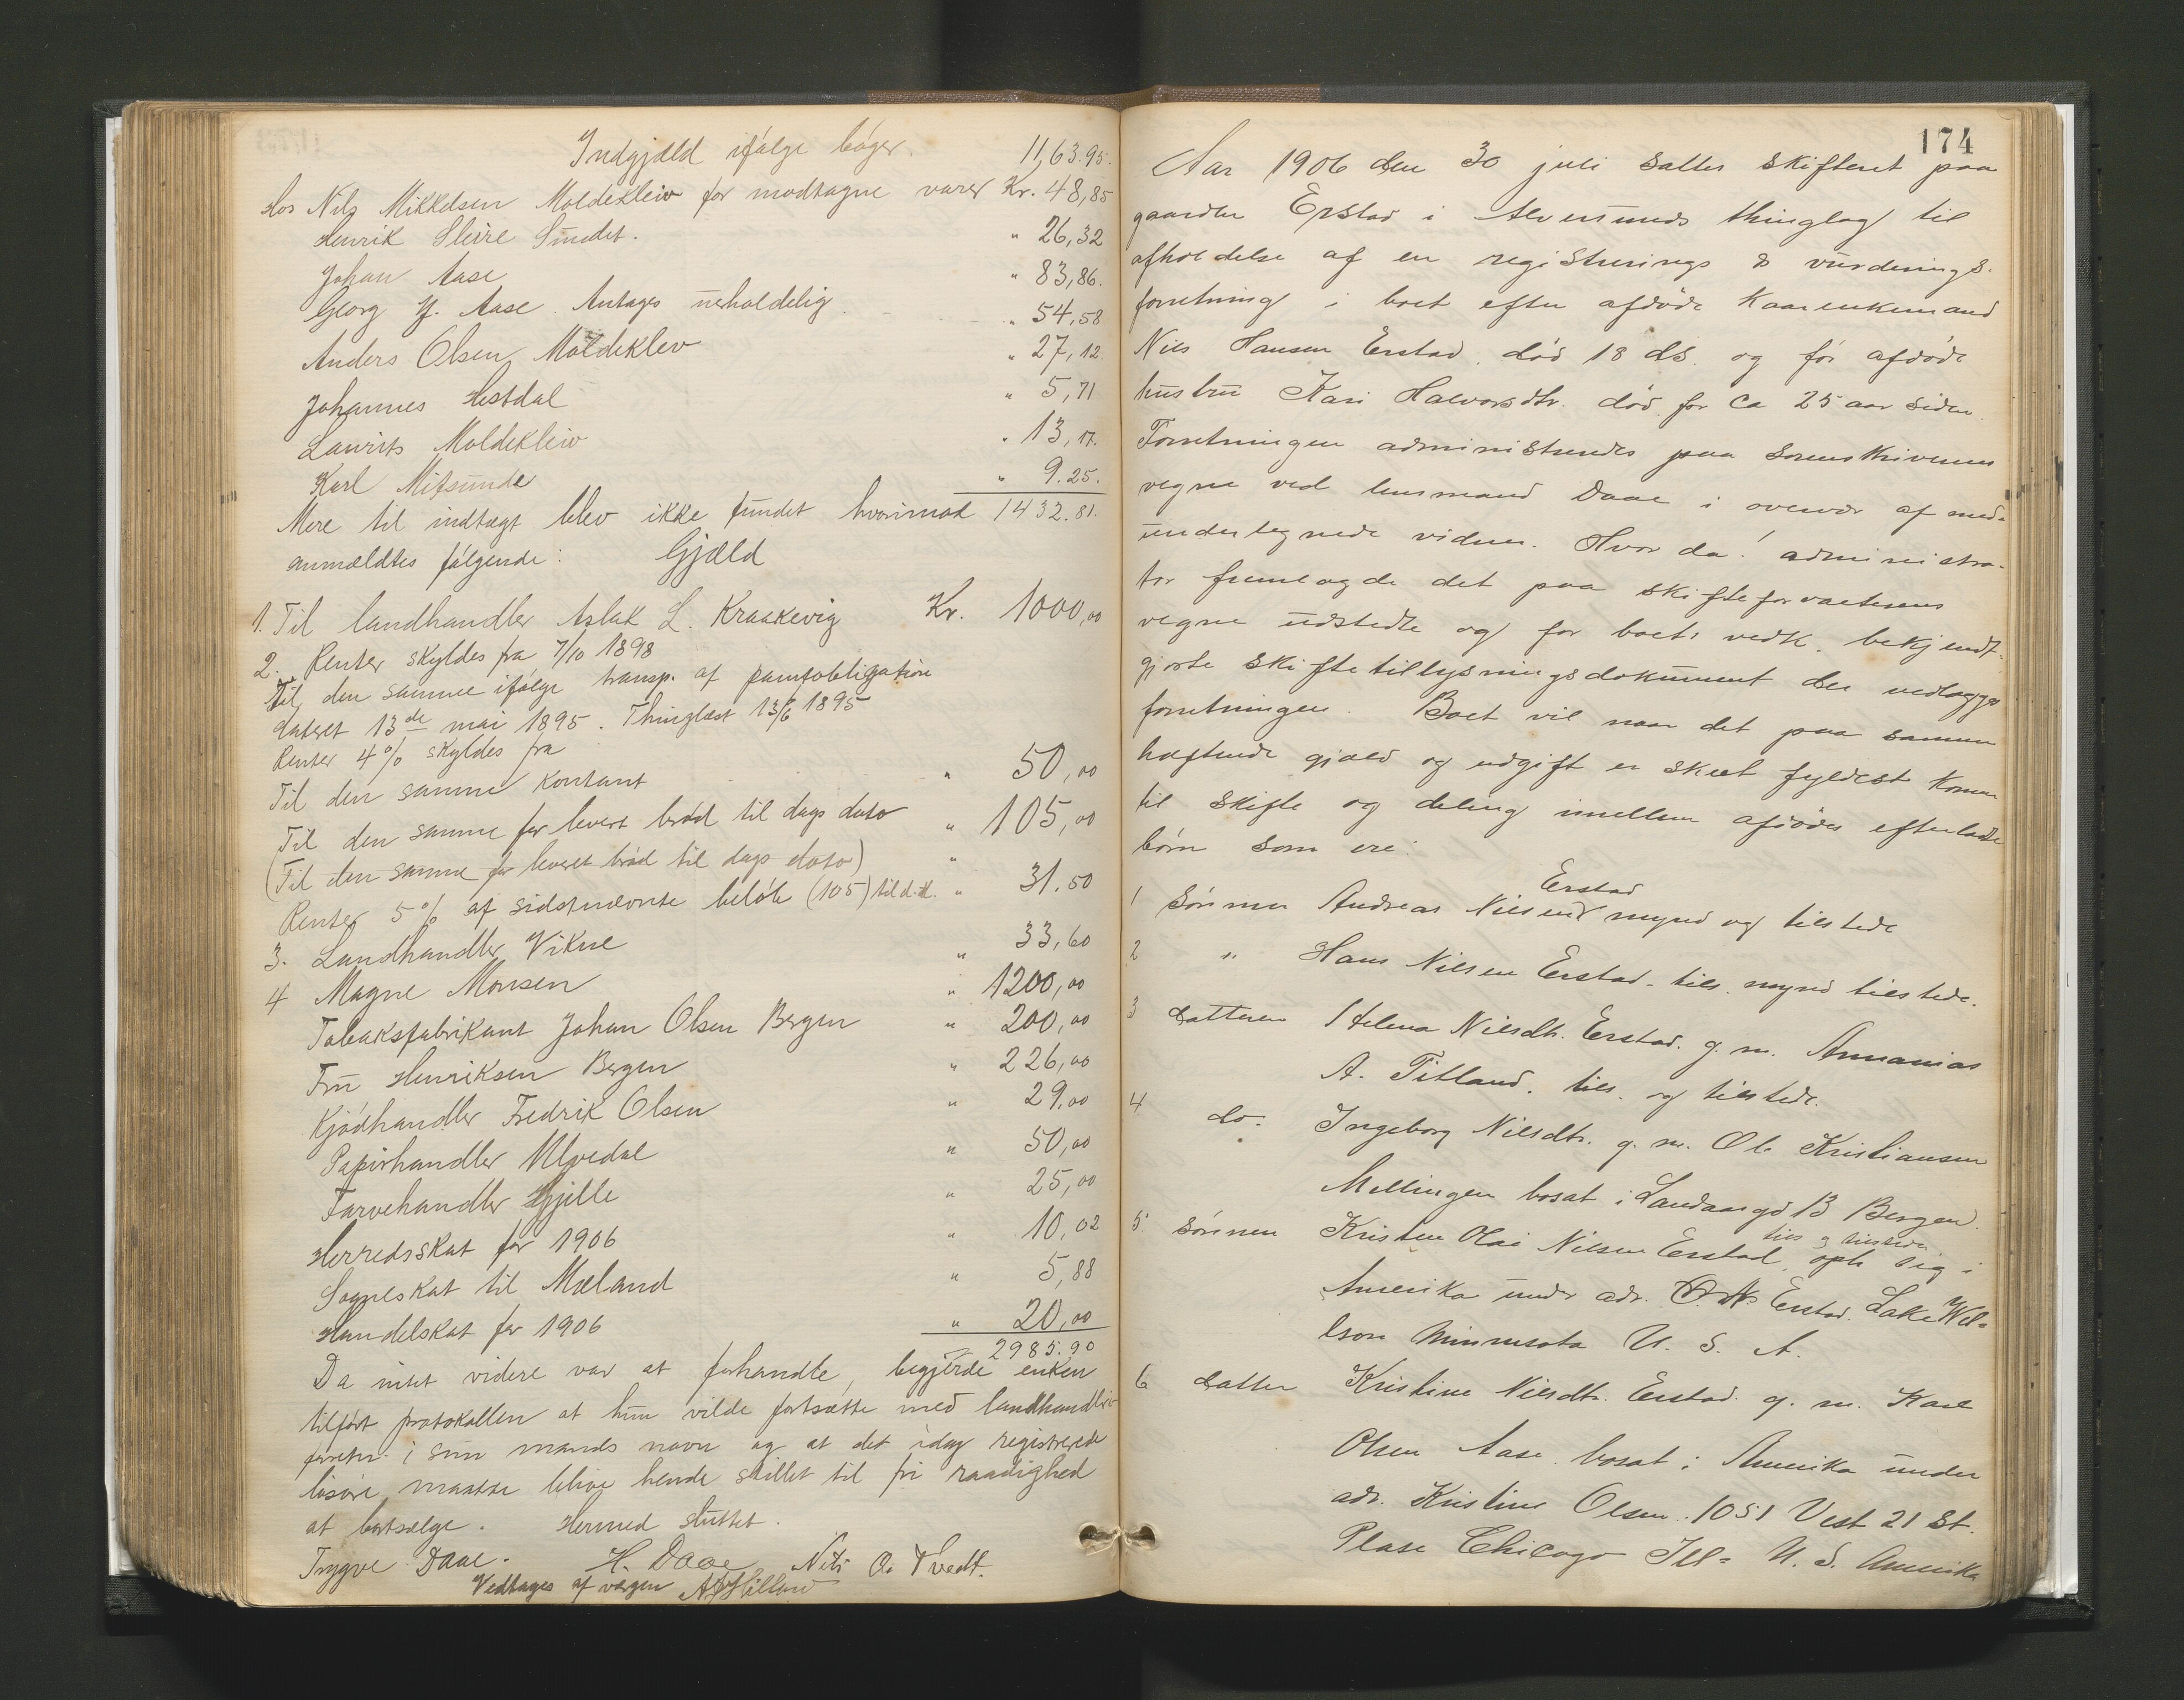 Indgjæld ifølge bøger. 11,63.95.
Hos Nils Mikkelsen Moldekleiv for modtagne varer Kr. 48,85
Henrik Sleire Sundet. " 26,32
Johan Aase " 83,86.
Georg J. Aase. Antages uerholdelig. " 54,58
Anders Olsen Moldeklev " 27,12.
Johannes Hestdal " 5,71
Laurits Moldekleiv " 13,17.
Karl Mitsunde " 9.25.
Mere til indtægt blev ikke fundet hvorimod 1432.81.
anmældtes følgende: Gjæld
1. Til landhandler Aslak L. Kraakevig Kr. 1000,00
2. Renter skyldes fra 7/10 1898
Til den samme ifølge transp. af pantobligation
dateret 13de mai 1895. Thinglæst 13/6 1895
Renter 4% skyldes fra
Til den samme kontant " 50,00
Til den samme for levert brød til dags dato " 105,00
(Til den samme for leveret brød til dags dato) "
Renter 5% af sidstnævnte beløb (105) til d.d. " 31.50
3. Landhandler Vikne " 33,60
4 Magne Monsen " 1200,00
Tobaksfabrikant Johan Olsen Bergen " 200,00
Fru Henriksen Bergen " 226,00
Kjødhandler Fredrik Olsen " 29,00
Papirhandler Ulvedal " 50,00
Farvehandler Gjille " 25,00
Herredsskat for 1906 " 10,02
Sogneskat til Mæland " 5,88
Handelskat for 1906 " 20,00
2985.90
Da intet videre var at forhandle, begjerde enken
tilført protokollen at hun vilde fortsætte med landhandler
forretn. i sin mands navn og at det idag registrerede
løsøre maatte blive hende stillet til fri raadighed
at bortsælge. Hermed sluttet.
Trygve Daae. H. Daae Nils O. Tvedt.
Vedtages af værgen
174
Aar 1906 den 30 juli sattes skifteret paa
gaarden Erstad i Alversunds thinglag til
afholdelse af en registrerings & vurderings-
forretning i boet efter afdøde kaarenkemand
Nils Hansen Erstad, død 18 ds. og før afdøde
hustru Kari Halvorsdtr. død for ca 25 aar siden.
Forretningen administreredes paa sorenskriverens
vegne ved lensmand Daae i overvær af med-
undertegnede vidner. Hvor da! administra-
tor fremlagde det paa skifteforvalterens
vegne udstedte og for boets vedk. bekjendt-
gjorte skiftetillysningsdokument der vedlægges
forretningen. Boet vil naar det paa samme
hæftende gjæld og udgift er skeet fyldest komme
til skifte og deling imellem afdødes efterladte
børn som ere:
1 Sønnen Andreas Nilsen Erstad mynd og tilstede
2 " Hans Nilsen Erstad. tils. mynd tilstede.
3 datteren Helena Nilsdtr. Erstad. g. m. Annanias
A. Titland. tils. og tilstede.
4 do. Ingeborg Nilsdtr. g. m. Ole Kristiansen
Mellingen bosat i Landaasgd 13 Bergen.
tils og tilstede
5 Sønnen Kristen Olai Nilsen Erstad, oph sig i
Amerika under adr. O. N. Erstad. Lake Wil-
lson Minnesota U. S. A.
6 Datter Kristine Nilsdtr. Erstad. g. m. Karl
Olsen Aase. bosat i Amerika under
adr. Kristine Olsen. 1051 Vest 21 St.
Plase Chicago Ill= U. S. Amerika